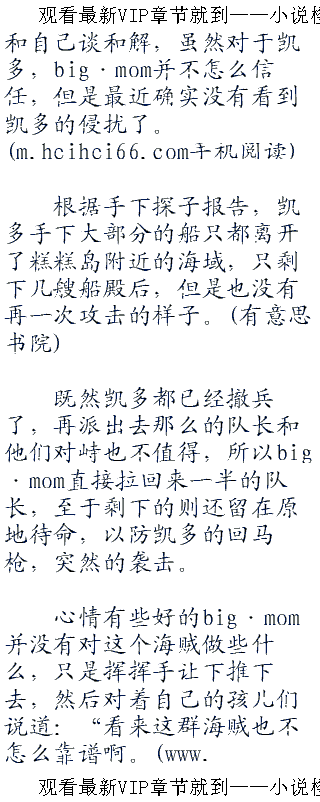 观看最新VIP章节就到——小说检
和自己谈和解，虽然对于凯
多，big·mom并不怎么信
任，但是最近确实没有看到
凯多的侵扰了。
(m.hcihci66.com手机阅读)
根据手下探子报告，凯
多手下大部分的船只都离开
了糕糕岛附近的海域，只剩
下几艘船殿后，但是也没有
再一次攻击的样子。(有意思
书院)
既然凯多都已经撤兵
了，再派出去那么的队长和
他们对峙也不值得，所以big
·mom直接拉回来一半的队
长，至于剩下的则还留在原
地待命，以防凯多的回马
枪，突然的袭击。
心情有些好的big·mom
并没有对这个海贼做些什
么，只是挥挥手让下推下
去，然后对着自己的孩儿们
说道：“看来这群海贼也不
怎么靠谱啊。(www.
观看最新VIP章节就到——小说检